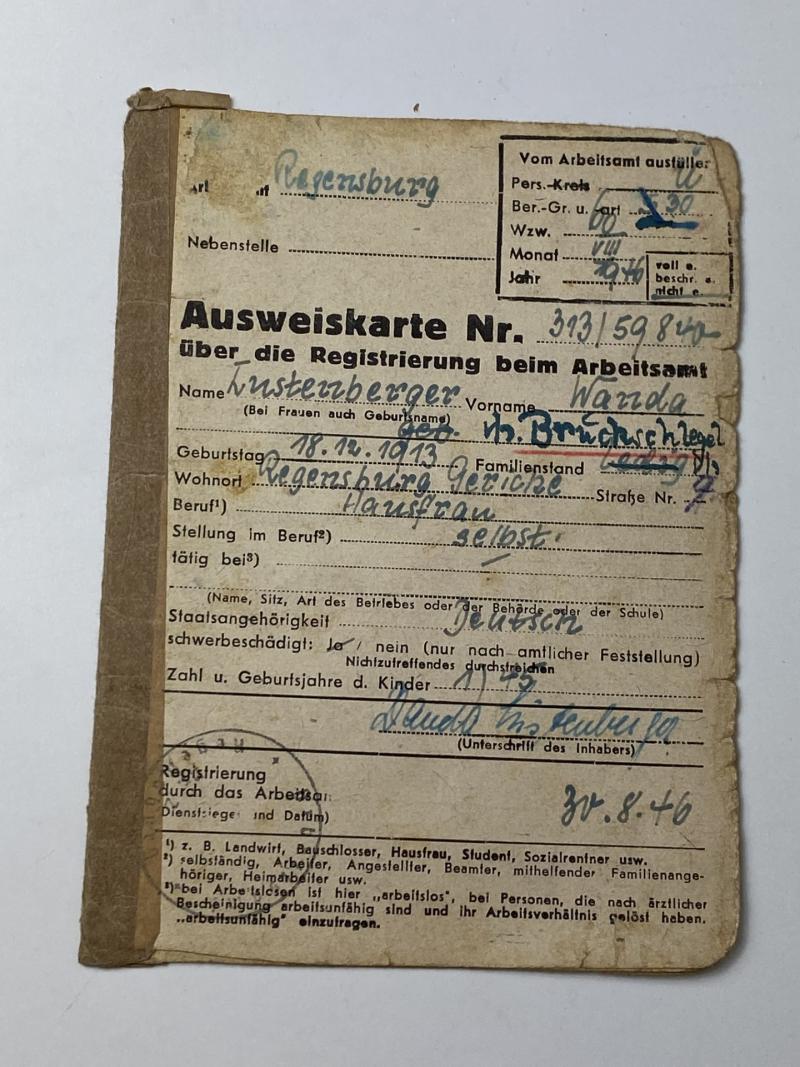 Regensburg
Nebenstelle
Vom Arbeitsamt ausfüllen
Pers.-Kreis
Ber.-Gr. u. -art 30
Wzw. 60
Monat VIII
Jahr 1946
voll e.
beschr. e.
nicht e.
Ausweiskarte Nr. 313/59840
über die Registrierung beim Arbeitsamt
Name Lustenberger Vorname Wanda
(Bei Frauen auch Geburtsname)
geb. Bruckschlegel
Geburtstag 18.12.1913 Familienstand ledig
Wohnort Regensburg Straße Nr. 7
Beruf¹) Hausfrau
Stellung im Beruf²) selbst.
tätig bei³) —
(Name, Sitz, Art des Betriebes oder der Behörde oder der Schule)
Staatsangehörigkeit Deutsch
schwerbeschädigt: Ja / nein (nur nach amtlicher Feststellung)
Nichtzutreffendes durchstreichen
Zahl u. Geburtsjahre d. Kinder 1) 45
Wanda Lustenberger
(Unterschrift des Inhabers)
Registrierung
durch das Arbeitsa
Dienstsiegel und Datum)
30.8.46
¹) z. B. Landwirt, Bauschlosser, Hausfrau, Student, Sozialrentner usw.
²) selbständig, Arbeiter, Angestellter, Beamter, mithelfender Familienange-
höriger, Heimarbeiter usw.
³) bei Arbeitslosen ist hier „arbeitslos", bei Personen, die nach ärztlicher
Bescheinigung arbeitsunfähig sind und ihr Arbeitsverhältnis gelöst haben.
„arbeitsunfähig" einzutragen.